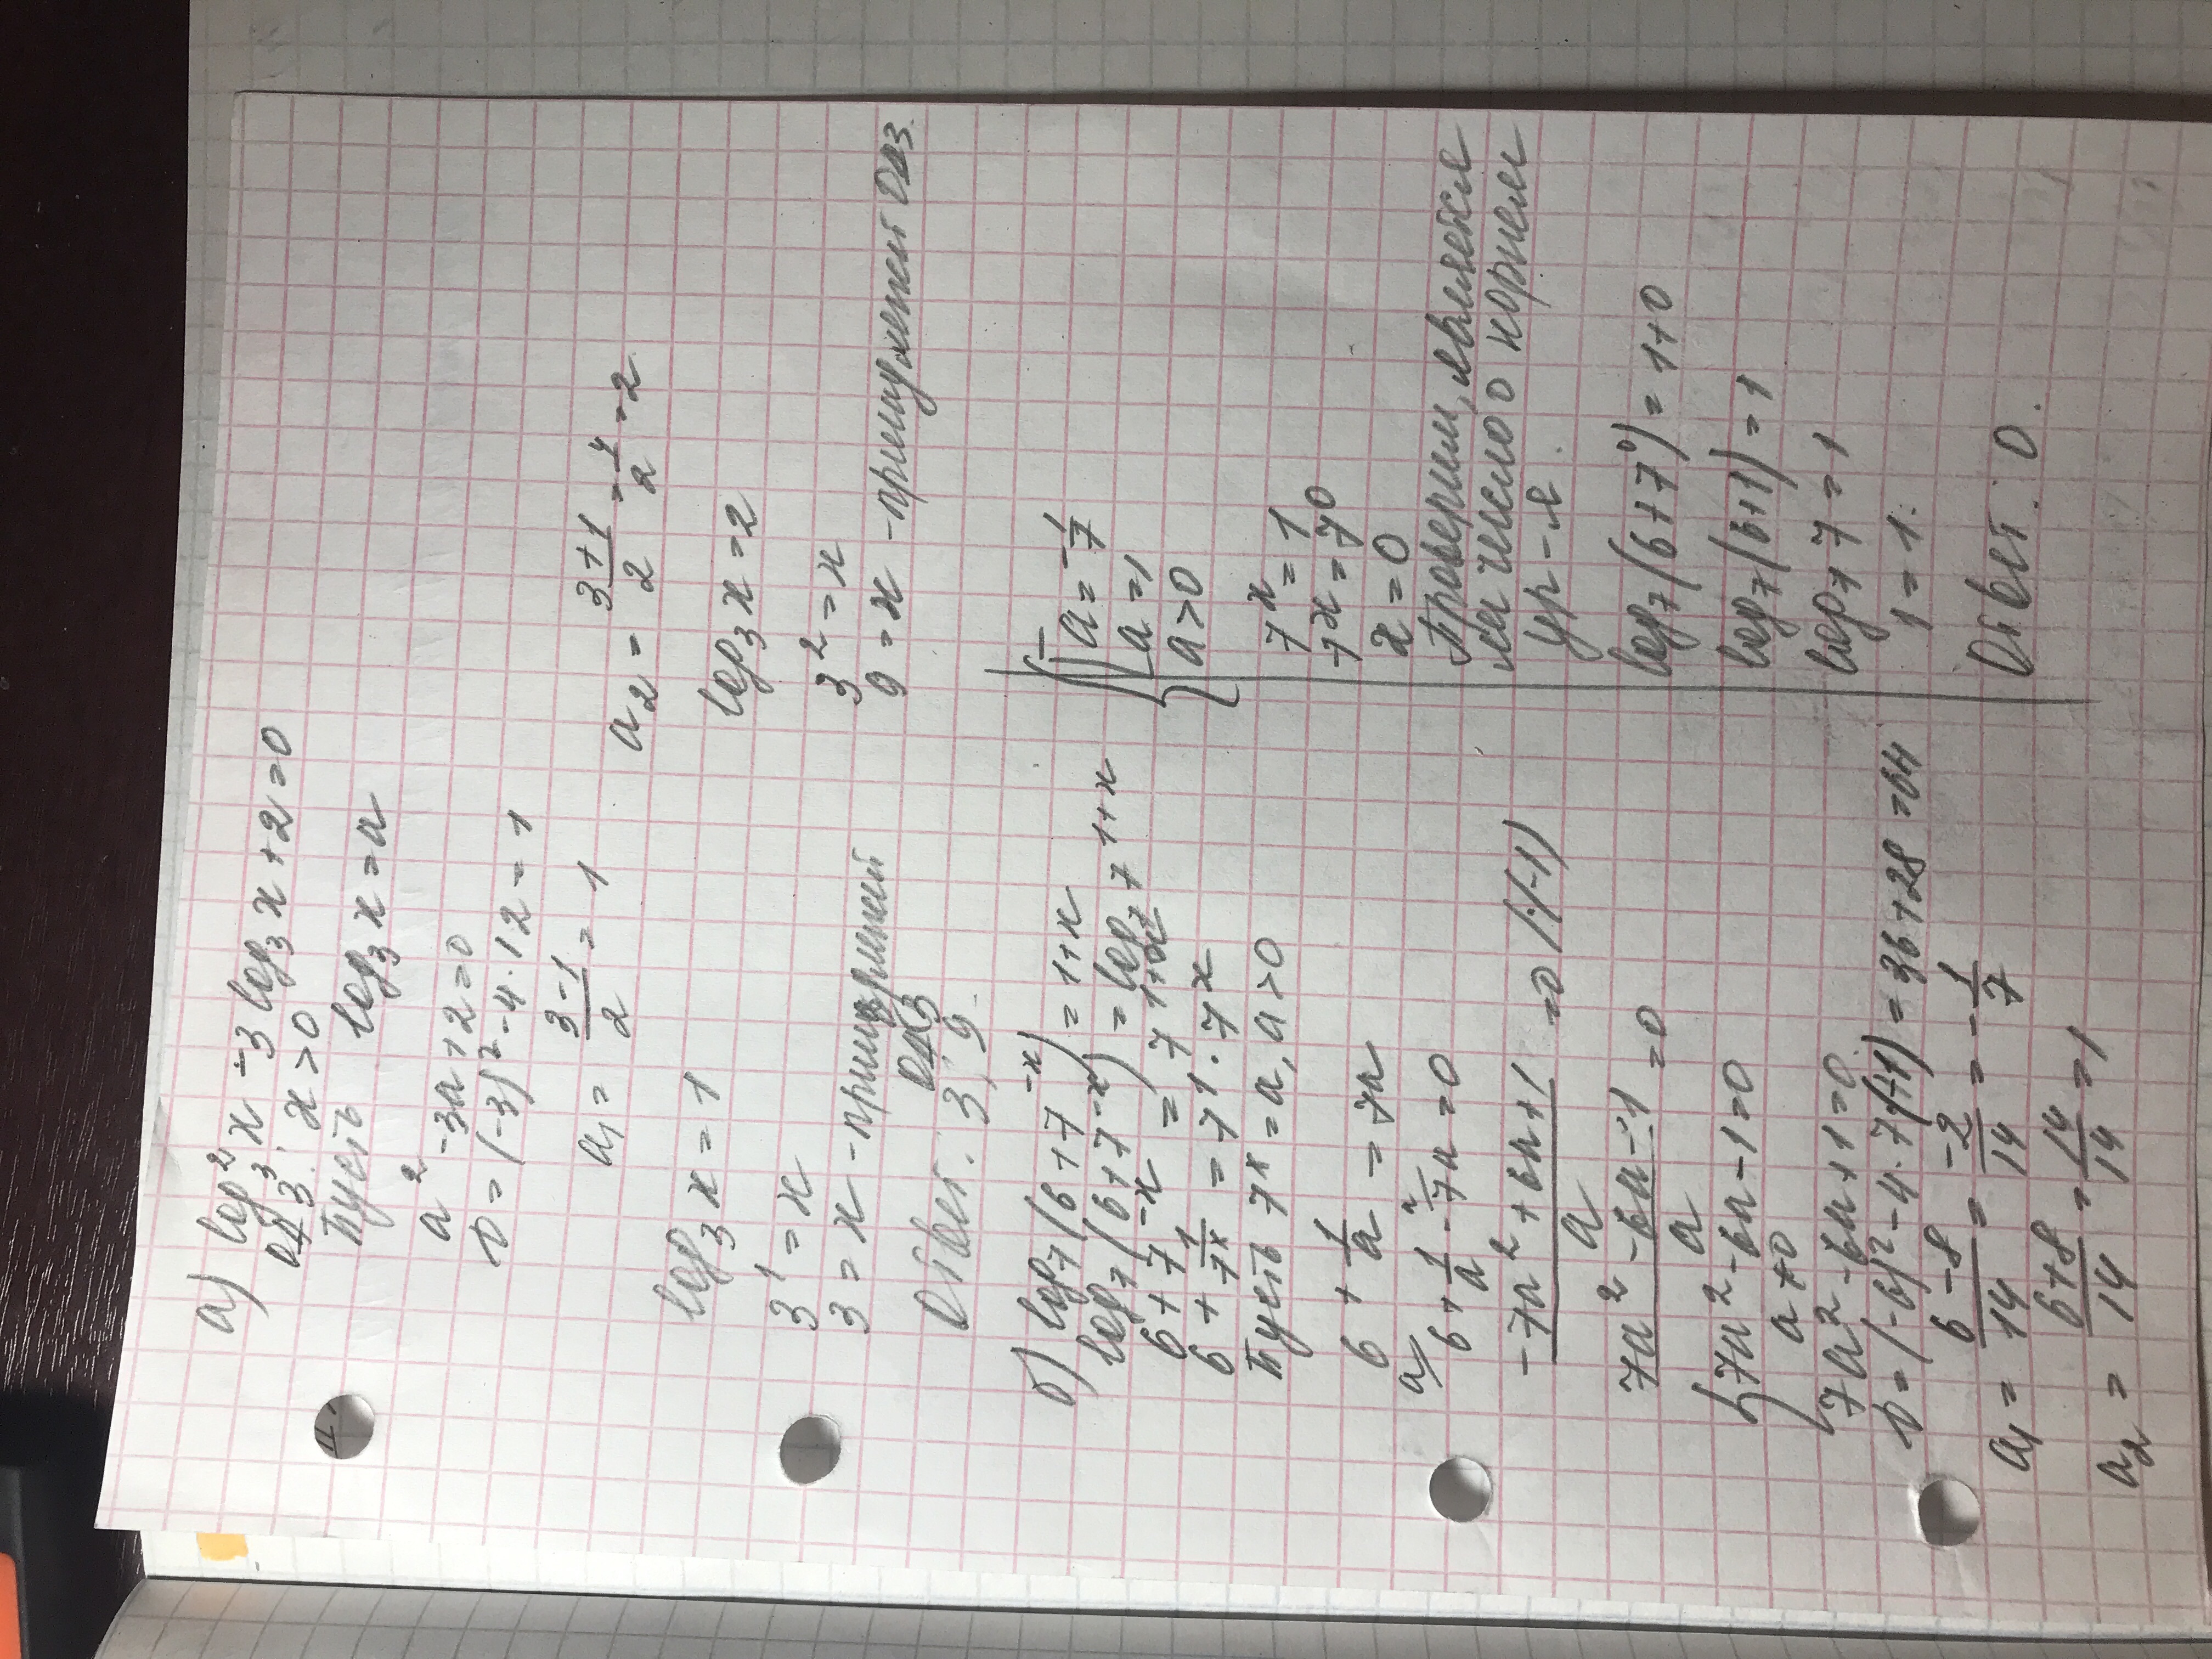 II.
а) log₃²x - 3 log₃x + 2 = 0
ОДЗ: x > 0
Пусть log₃x = a
a² - 3a + 2 = 0
D = (-3)² - 4·1·2 = 1
a₁ = (3-1)/2 = 1
a₂ = (3+1)/2 = 4/2 = 2
log₃x = 1
3¹ = x
3 = x - принадлежит ОДЗ
log₃x = 2
3² = x
9 = x - принадлежит ОДЗ.
Ответ: 3; 9.
б) log₇(6+7⁻ˣ) = 1+x
log₇(6+7⁻ˣ) = log₇7¹⁺ˣ
6+7⁻ˣ = 7¹⁺ˣ
6 + 1/7ˣ = 7¹·7ˣ
Пусть 7ˣ = a, a>0
6 + 1/a = 7a
6 + 1/a - 7a = 0
(-7a²+6a+1)/a = 0 |·(-1)
(7a²-6a-1)/a = 0
{7a²-6a-1=0
a≠0
7a²-6a+1=0
D = (-6)²-4·7·(-1) = 36+28 = 64
a₁ = (6-8)/14 = -2/14 = -1/7
a₂ = (6+8)/14 = 14/14 = 1
{[a = -1/7
a = 1
a > 0
7ˣ = 1
7ˣ = 7⁰
x = 0
Проверим, является
ли число 0 корнем
ур-я.
log₇(6+7⁰) = 1+0
log₇(6+1) = 1
log₇7 = 1
1 = 1.
Ответ: 0.